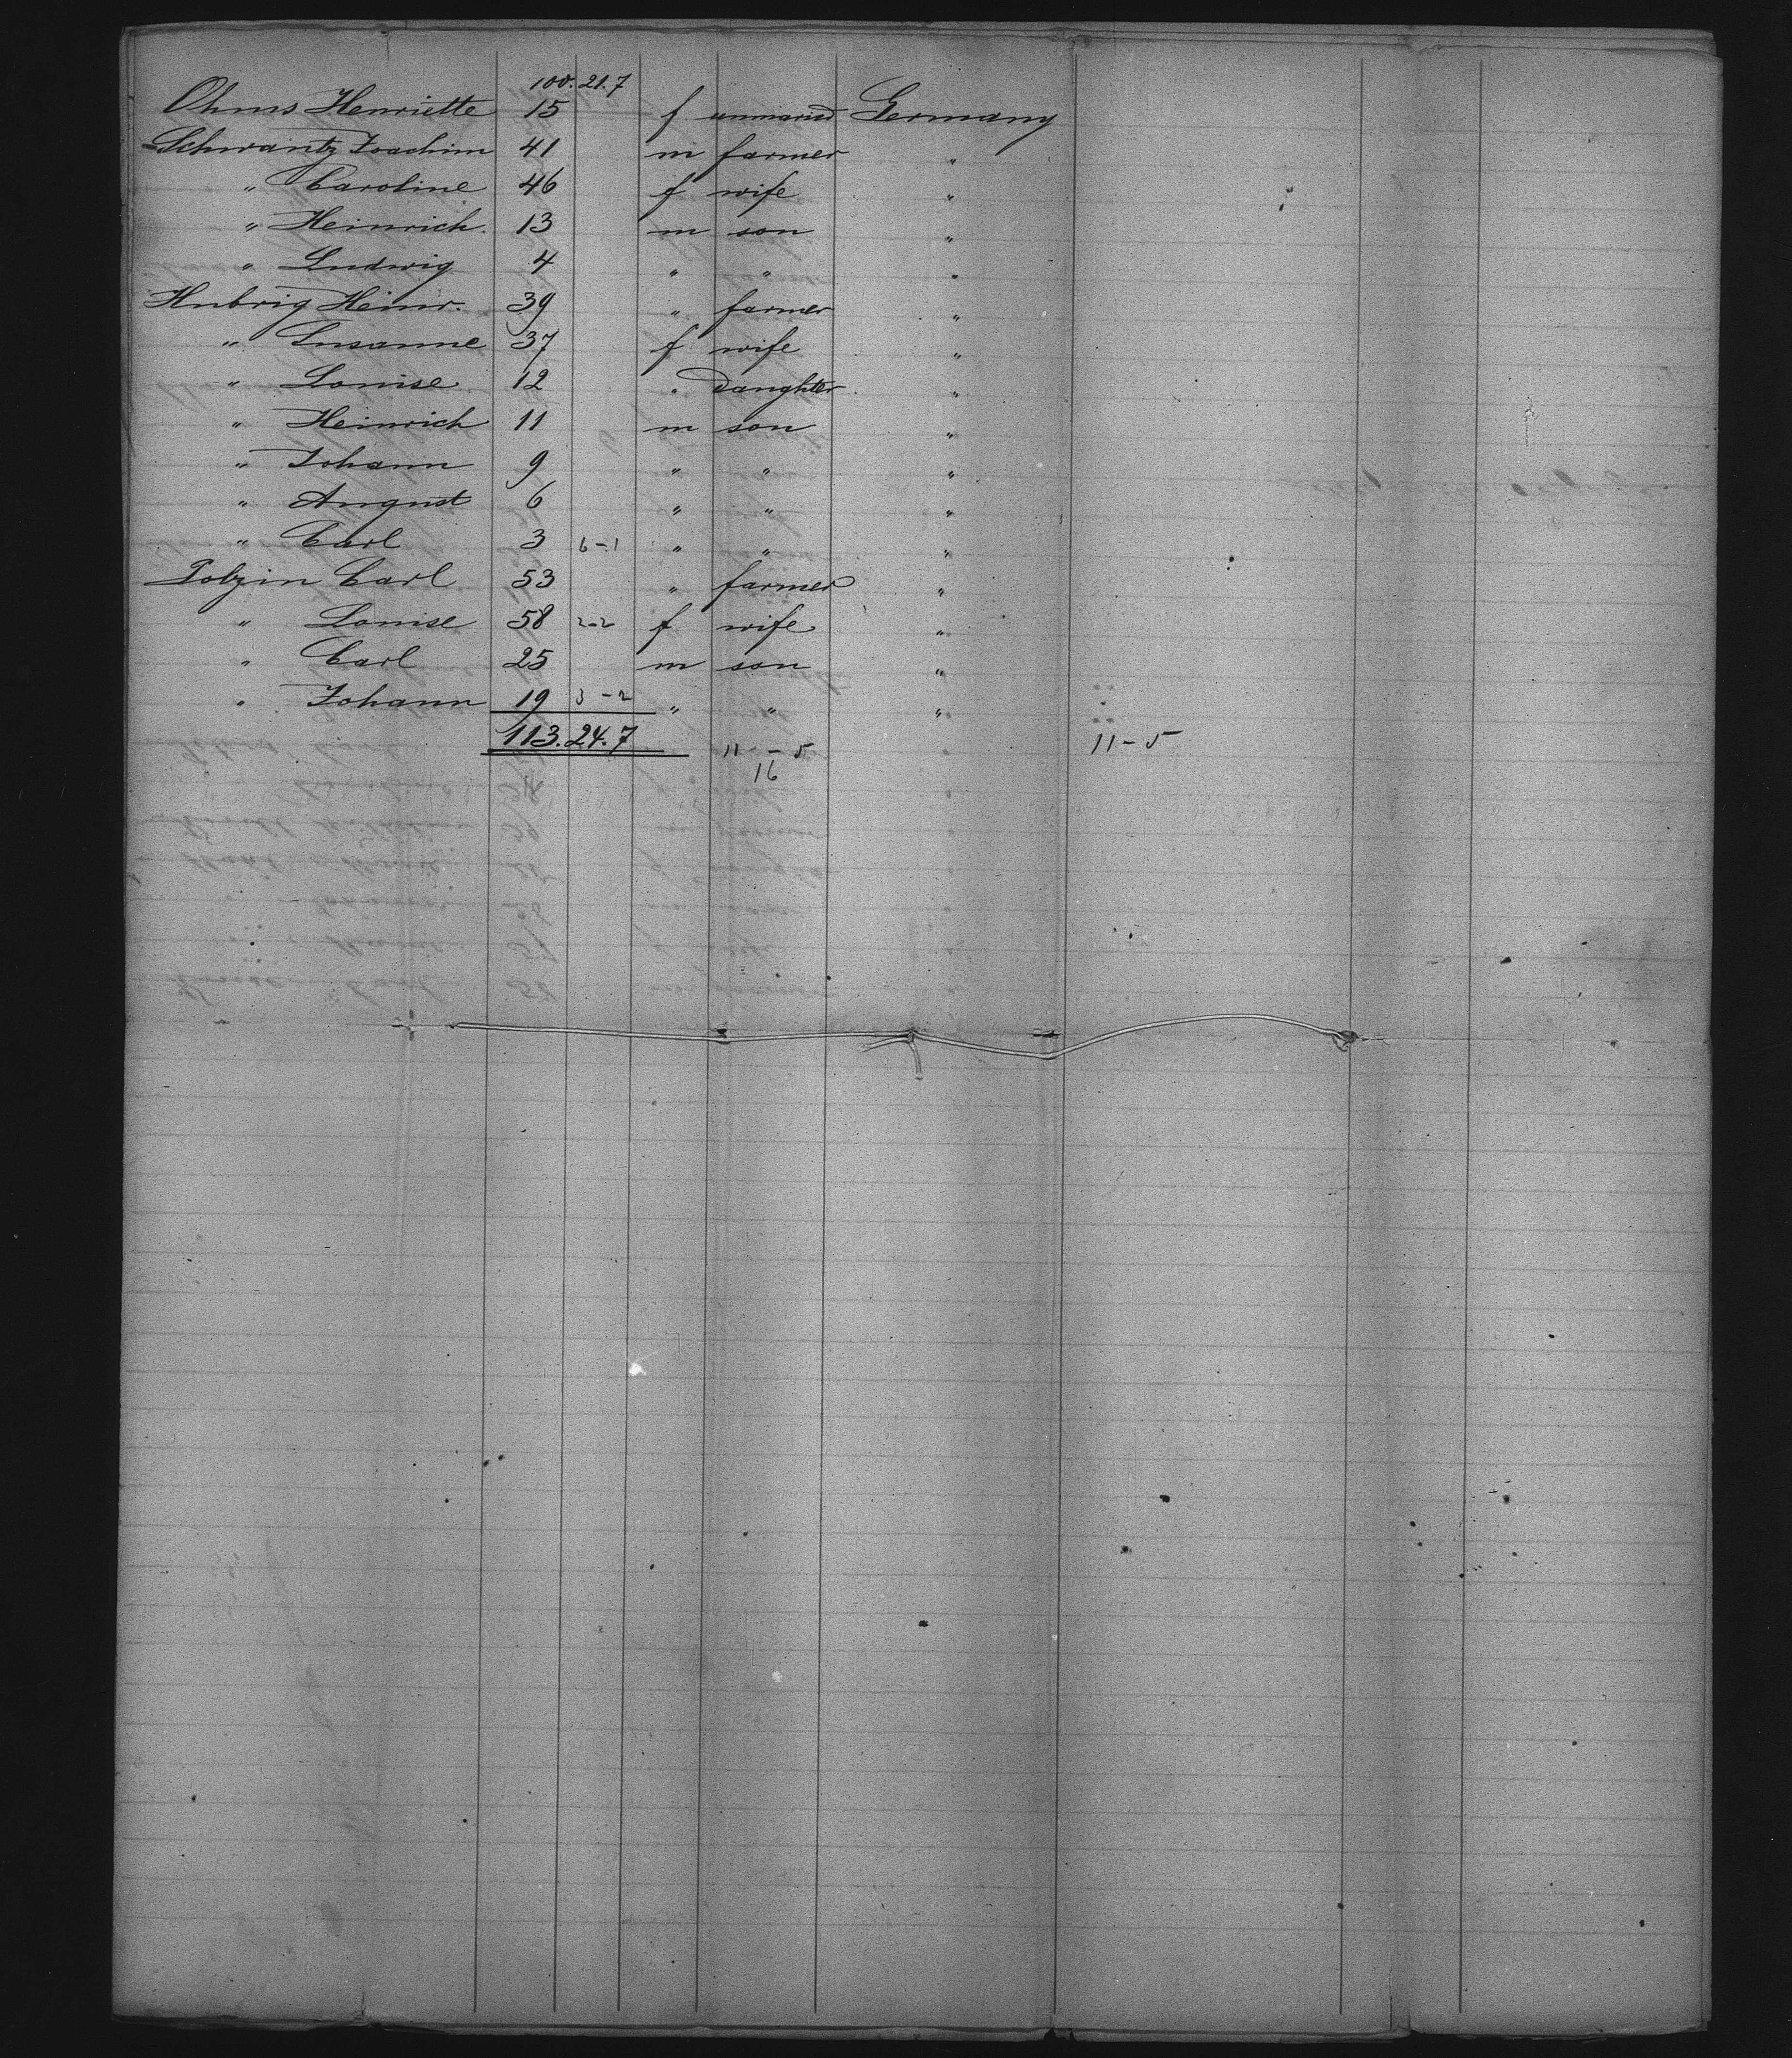 100. 21. 7
Ohms Henriette 15 f unmaried Germany
Schwantz Joachim 41 m farmer "
" Caroline 46 f wife "
" Heinrich. 13 m son "
" Ludwig 4 " " "
Hubrig Heinr. 39 " farmer "
" Susanne 37 f wife "
" Louise 12 " daughter "
" Heinrich 11 m son "
" Johann 9 " " "
" August 6 " " "
" Carl 3 6-1 " " "
Polzin Carl 53 " farmer "
" Louise 58 2-2 f wife "
" Carl 25 m son "
" Johann 19 3-2 " " "
113. 24. 7 11 - 5 11-5
16